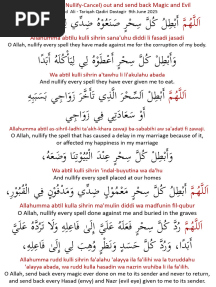 PDF
(Nullify-Cancel) out and send back Magic and Evil
Ali - Tariqah Qadiri Dastagir 9th June 2025
اَللّٰهُمَّ أَبْطِلْ كُلَّ سِحْرٍ صَنَعُوْهُ ضِدِّي
Allahumma abtilu kulli sihrin sana'uhu diddi li fasadi jasadi
O Allah, nullify every spell they have made against me for the corruption of my body.
وَأَبْطِلْ كُلَّ سِحْرٍ أَعْطَوْهُ لِي لِيَأْكُلَهُ أَبَدًا
Wa abtil kulli sihrin a'tawhu li l'akulahu abada
And nullify every spell they have ever given me to eat.
اَللّٰهُمَّ أَبْطِلِ السِّحْرَ الَّذِي تَأَخَّرَ زَوَاجِي بِسَبَبِهِ
أَوْ سَعَادَتِي فِي زَوَاجِي
O Allah, nullify the spell that has caused a delay in my marriage because of it,
or affected my happiness in my marriage
وَأَبْطِلْ كُلَّ سِحْرٍ عِنْدَ الْبُيُوْتِنَا وَضَعَهُ،
Wa abtil kulli sihrin 'indal-buyutina wa da'hu
And nullify every spell placed at our homes
اَللّٰهُمَّ أَبْطِلْ كُلَّ سِحْرٍ مَعْمُوْلٍ ضِدِّي وَمَدْفُوْنٍ فِي الْقُبُوْرِ،
Allahumma abtil kulla sihrin ma'mulin diddi wa madfunin fil-qubur
O Allah, nullify every spell done against me and buried in the graves
اَللّٰهُمَّ رُدَّ كُلَّ سِحْرٍ فَعَلَهُ عَلَيَّ إِلَى فَاعِلِهِ وَلَا تَرُدَّهُ عَلَيَّ
أَبَدًا، وَرُدَّ كُلَّ حَسَدٍ وَنَظَرٍ وُهِبَ لِي إِلَى فَاعِلِهِ،
Allahumma rudd kulli sihrin fa'alahu 'alayya ila fa'ilihi wa la turuddahu
'alayya abada, wa rudd kulla hasadin wa nazrin wuhiba li ila fa'ilihi.
O Allah, send back every magic ever done on me to its sender and never to return,
and send back every Hasad (envy) and Nazr (evil eye) given to me to its sender.